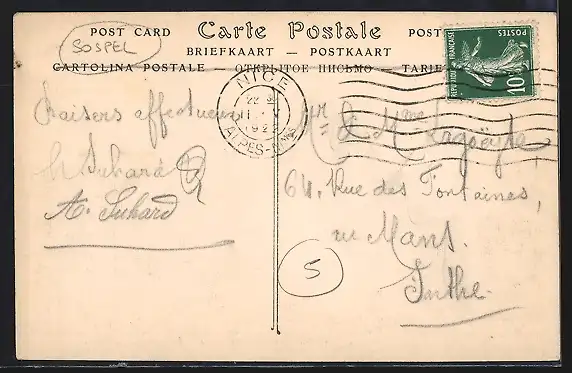 POST CARD Carte Postale POST
SOSPEL
BRIEFKAART — POSTKAART
CARTOLINA POSTALE — ОТКРЫТОЕ ПИСЬМО — TARJE
RÉPUBLIQUE FRANÇAISE
POSTES
10
NICE
22
1922
ALPES-
Baisers affectueux
Suhard
A. Suhard
Mr & Mme
64, Rue des Fontaines,
au Mans.
Sarthe.
5